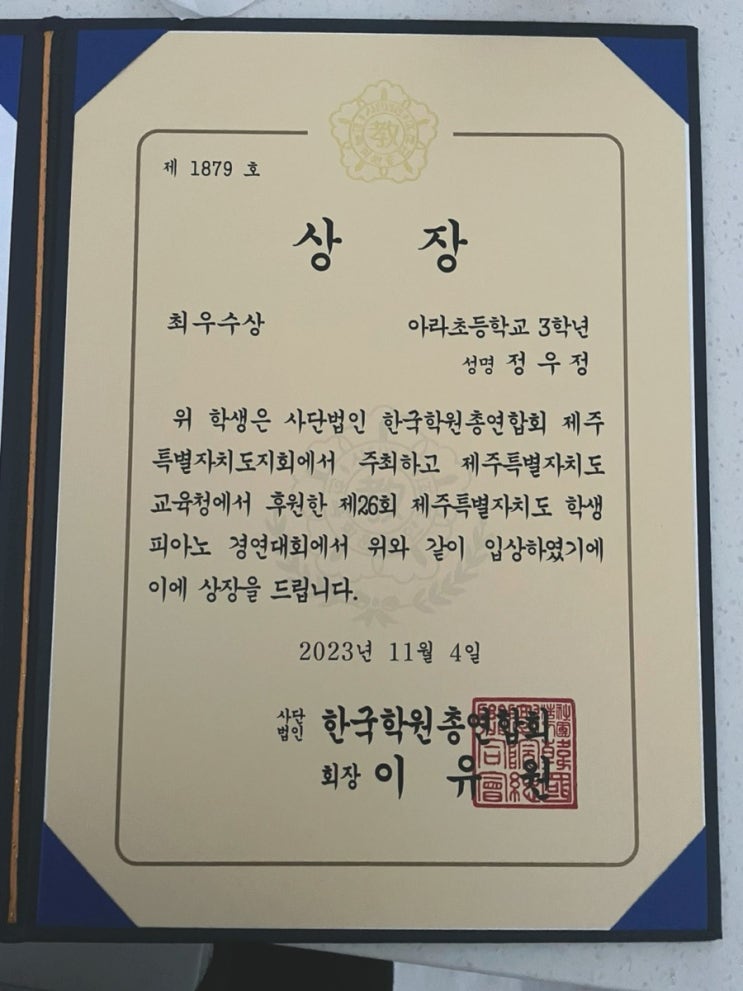 教
제 1879 호
상 장
최우수상
아라초등학교 3학년
성명 정 우 정
위 학생은 사단법인 한국학원총연합회 제주
특별자치도지회에서 주최하고 제주특별자치도
교육청에서 후원한 제26회 제주특별자치도 학생
피아노 경연대회에서 위와 같이 입상하였기에
이에 상장을 드립니다.
2023년 11월 4일
사단법인 한국학원총연합회
회장 이 유 원